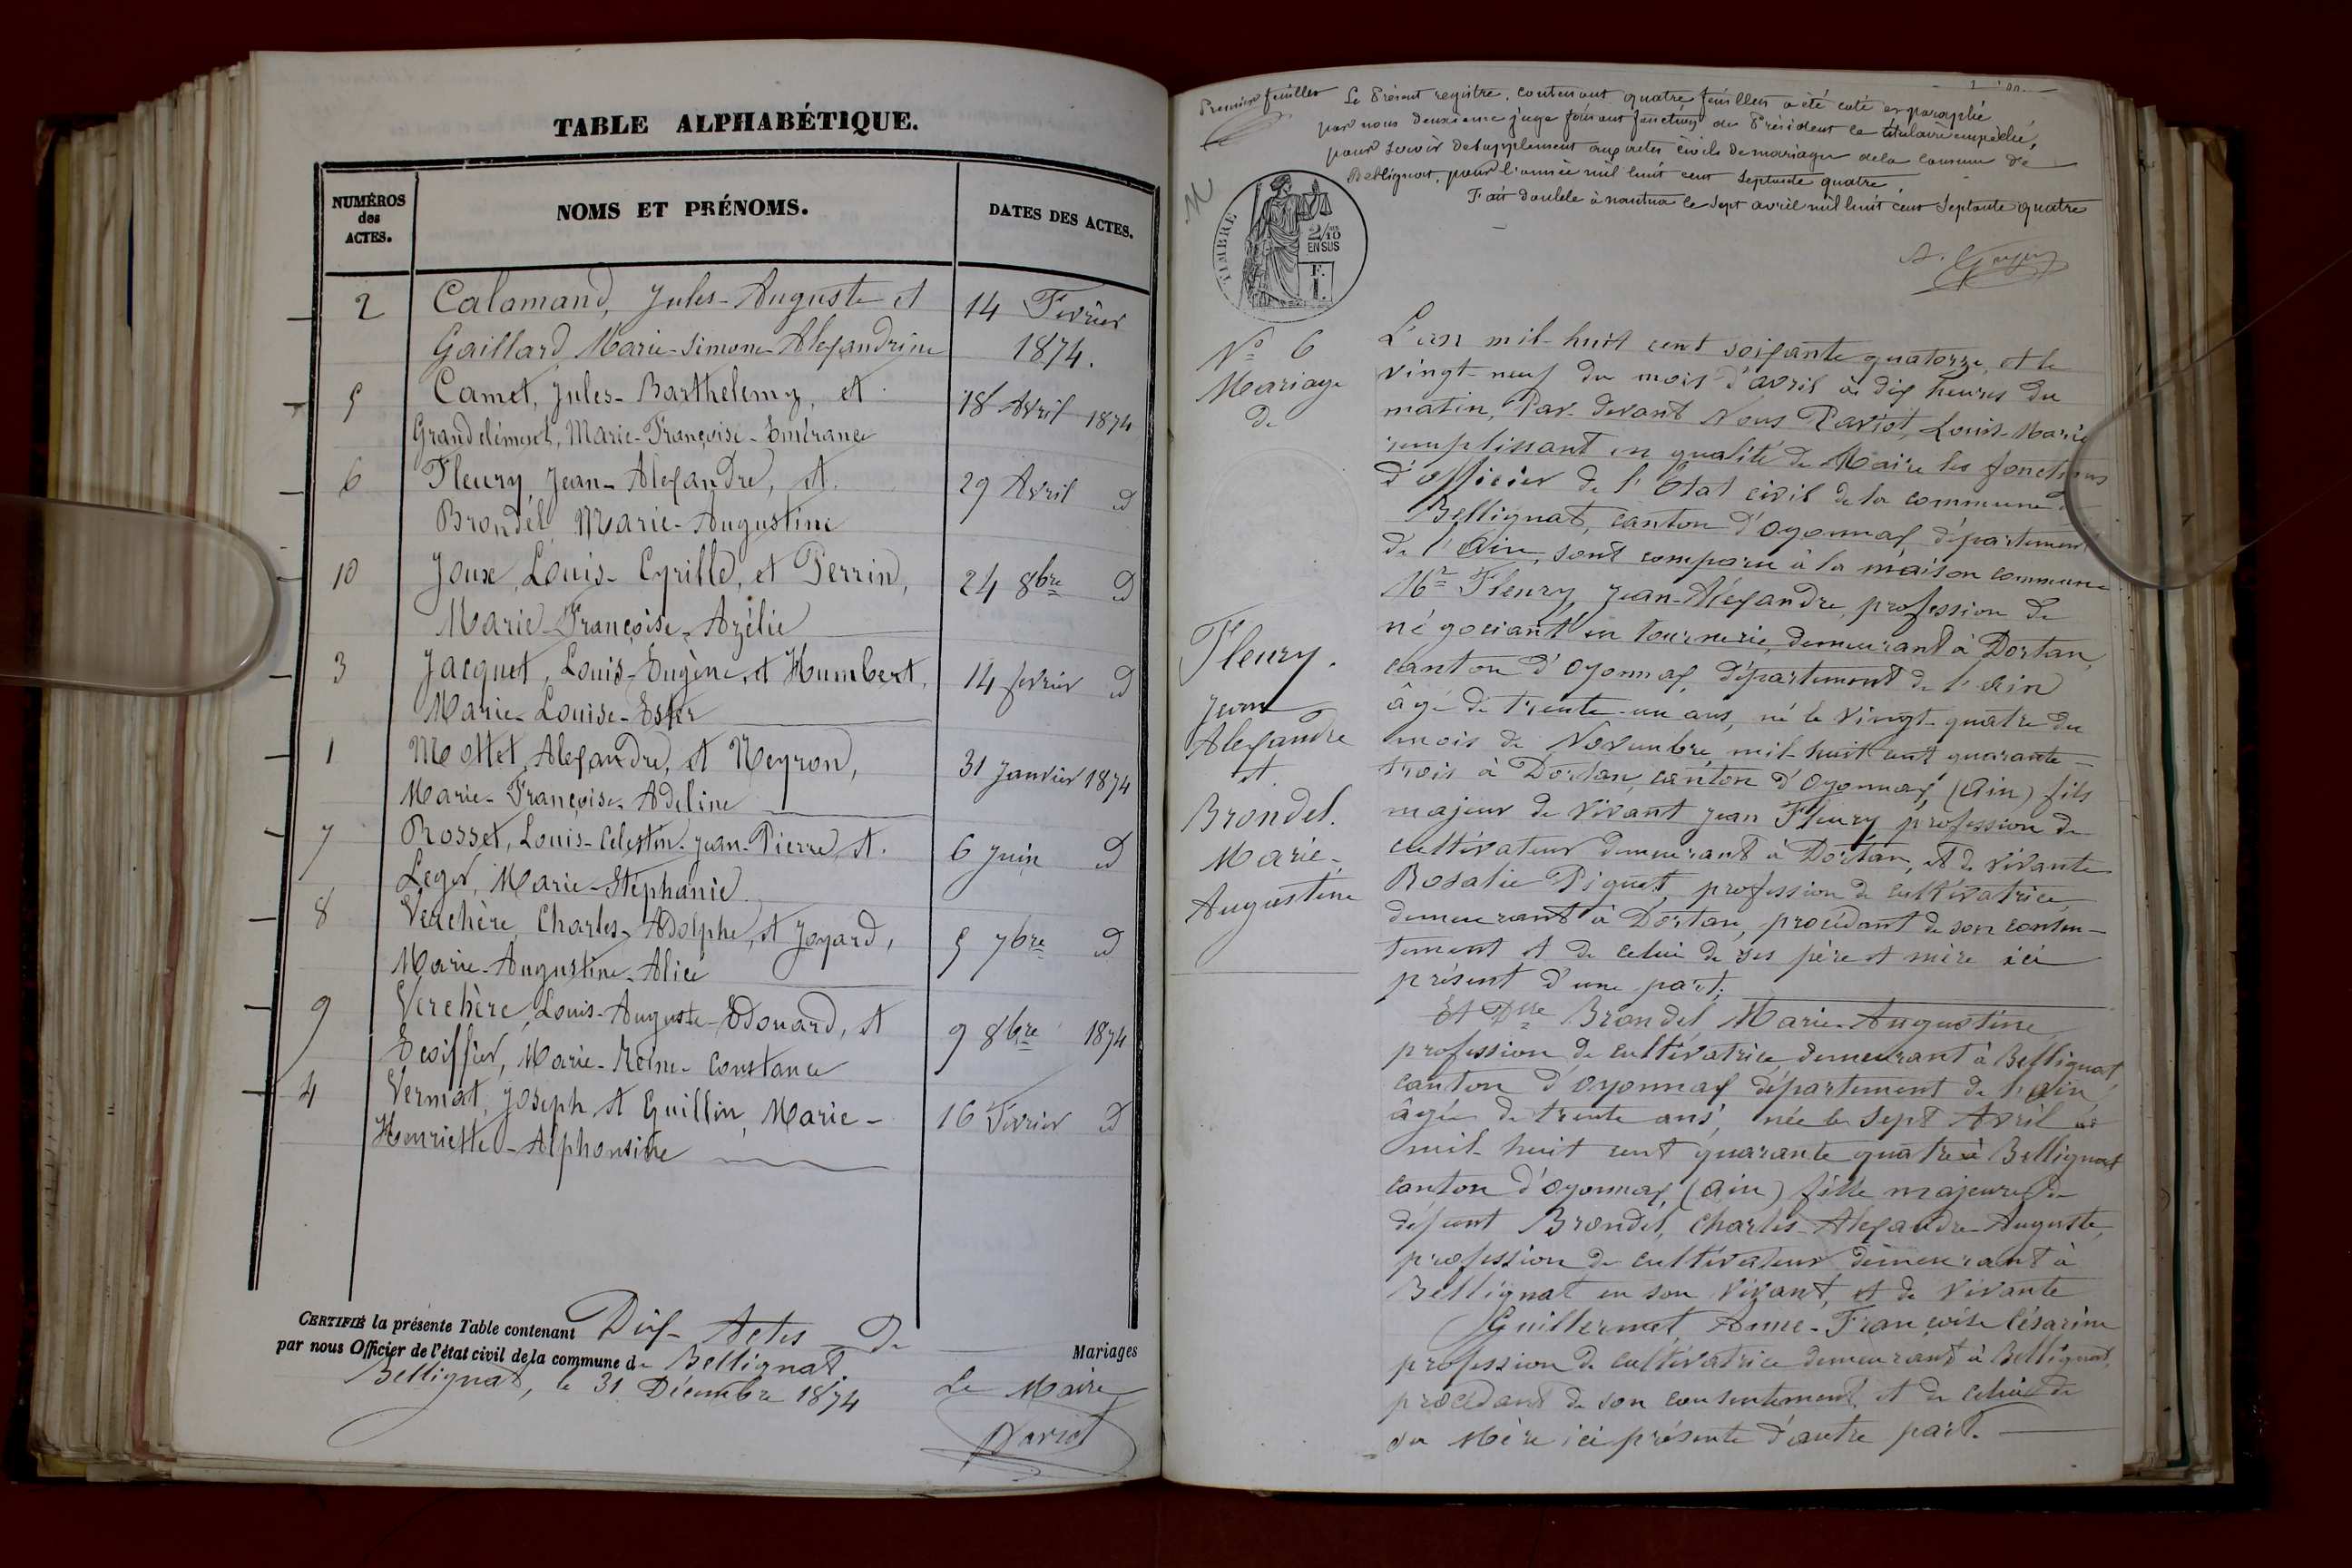 TABLE ALPHABÉTIQUE.
NUMÉROS
des
ACTES.
NOMS ET PRÉNOMS.
DATES DES ACTES.
2 Calamand, Jules-Auguste et 14 Fevrier
Gaillard Marie-Simone-Alexandrine 1874.
5 Camet, Jules-Barthelemy, et 18 Avril 1874
Grandclément, Marie-Françoise-Emérance
6 Fleury, Jean-Alexandre, et 29 Avril d
Brondel Marie-Augustine
10 Joux, Louis-Cyrille, et Perrin, 24 8bre d
Marie-Françoise-Azélie
3 Jacquet, Louis-Eugène, et Humbert, 14 fevrier d
Marie-Louise-Ester
1 Mottet, Alexandre, et Neyron, 31 Janvier 1874
Marie-Françoise-Adeline
7 Rosset, Louis-Celestin-Jean-Pierre, et 6 Juin d
Leger, Marie-Stéphanie
8 Verchère, Charles-Adolphe, et Joyard, 5 7bre d
Marie-Augustine-Alice
9 Verchère, Louis-Auguste-Edouard, et 9 8bre 1874
Ecoiffier, Marie-Reine-Constance
4 Vermat, Joseph et Guillin, Marie- 16 Fevrier d
Henriette-Alphonsine
CERTIFIÉ la présente Table contenant Dix Actes de Mariages
par nous Officier de l'état civil de la commune de Bellignat.
Bellignat, le 31 Décembre 1874
Le Maire
Pariot
Premier feuillet
Le Présent registre, contenant quatre feuillets a été coté et paraphé
par nous deuxième juge faisant fonctions de Président le titulaire empêché,
pour servir de supplement aux actes civils de mariage de la commune de
Bellignat, pour l'année mil huit cent septante quatre.
Fait double à nantua le sept avril mil huit cent septante quatre
TIMBRE
2/10
EN SUS
F.
1.
No 6
Mariage
de
Fleury.
Jean
Alexandre
et
Brondel.
Marie-
Augustine
L'an mil-huit cent soixante quatorze, et le
vingt-neuf du mois d'avril à dix heures du
matin, Par-devant Nous Pariot, Louis-Marie
remplissant en qualité de Maire les fonctions
d'officier de l'Etat civil de la commune de
Bellignat, canton d'Oyonnax, département
de l'Ain, sont comparu à la maison commune
Mr Fleury Jean-Alexandre, profession de
négociant en tournerie, demeurant à Dortan,
canton d'Oyonnax, département de l'Ain
âgé de trente-un ans, né le vingt-quatre du
mois de Novembre mil-huit cent quarante-
trois à Dortan, canton d'Oyonnax, (Ain) fils
majeur de vivant Jean Fleury profession de
cultivateur demeurant à Dortan, et de vivante
Rosalie Piquet, profession de cultivatrice,
demeurant à Dortan, procédant de son consen-
tement et de celui de ses père et mère ici
présent d'une part;
Et Dlle Brondel Marie-Augustine,
profession de cultivatrice demeurant à Bellignat,
canton d'Oyonnax, département de l'Ain,
âgée de trente ans, née le sept Avril
mil-huit cent quarante quatre à Bellignat
canton d'Oyonnax, (Ain) fille majeure de
défunt Brondel, Charles-Alexandre-Auguste,
profession de cultivateur demeurant à
Bellignat en son vivant, et de vivante
Guillermet, Anne-Françoise Césarine
profession de cultivatrice demeurant à Bellignat,
procédant de son consentement et de celui de
sa Mère ici présente d'autre part.